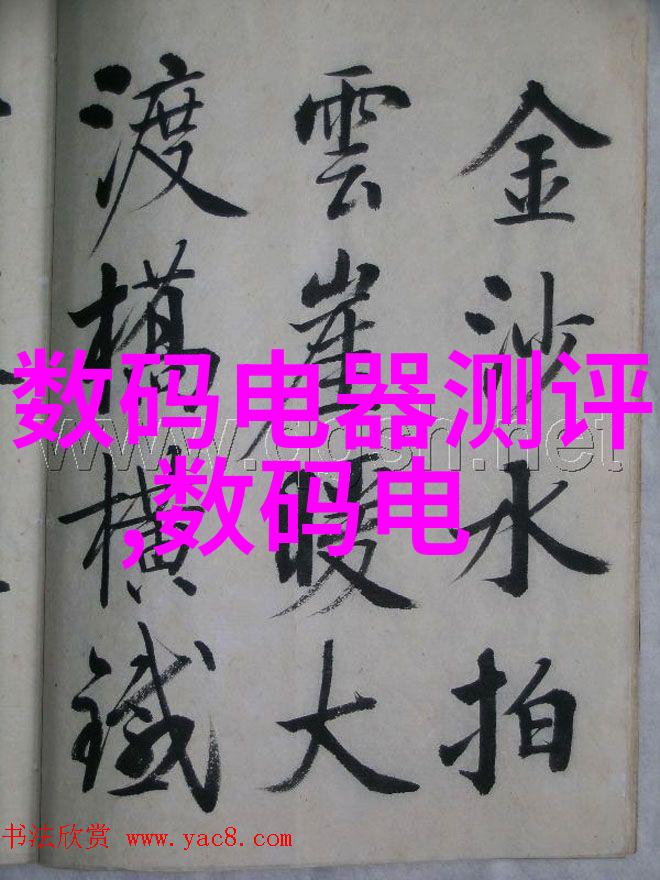 金沙水拍
雲崖暖大
渡橋橫鐵
数码电器测评
,数码电
书法欣赏 www.yac8.com